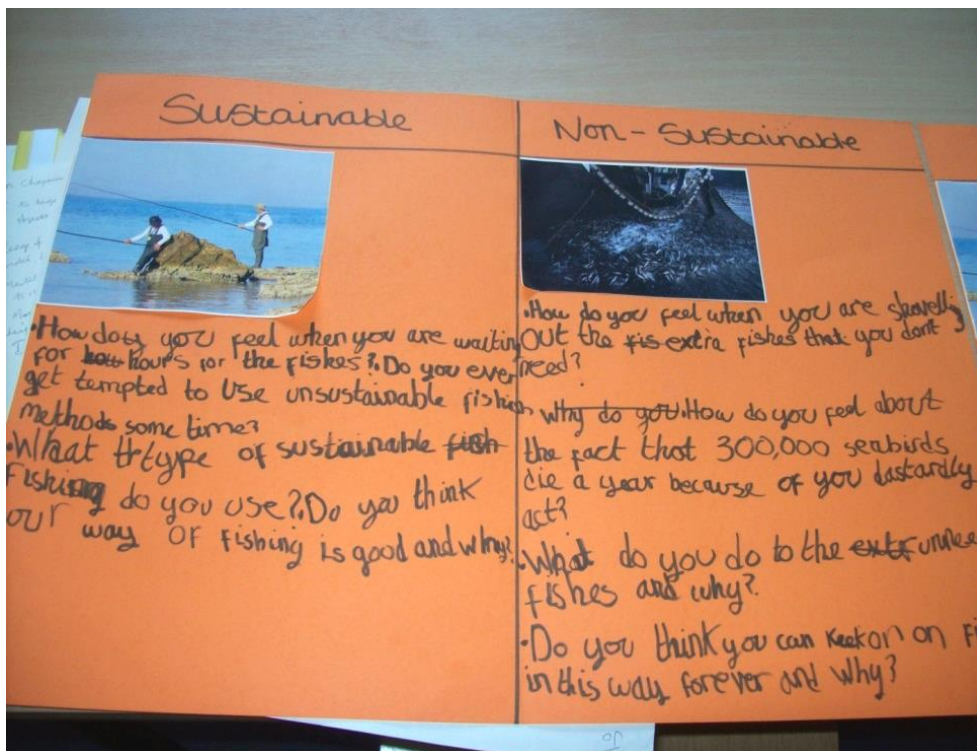 Sustainable
How do you feel when you are waiting
for hours for the fishes? Do you ever
get tempted to use unsustainable fishing
methods some time?
•What type of sustainable fish
fishing do you use? Do you think
our way of fishing is good and why?
Non - Sustainable
•How do you feel when you are shovelling
out the fis extra fishes that you don't
need?
why do you•How do you feel about
the fact that 300,000 seabirds
die a year because of you dastardly
act?
•What do you do to the extr unnee
fishes and why?
•Do you think you can keek on on Fi
in this way forever and why?